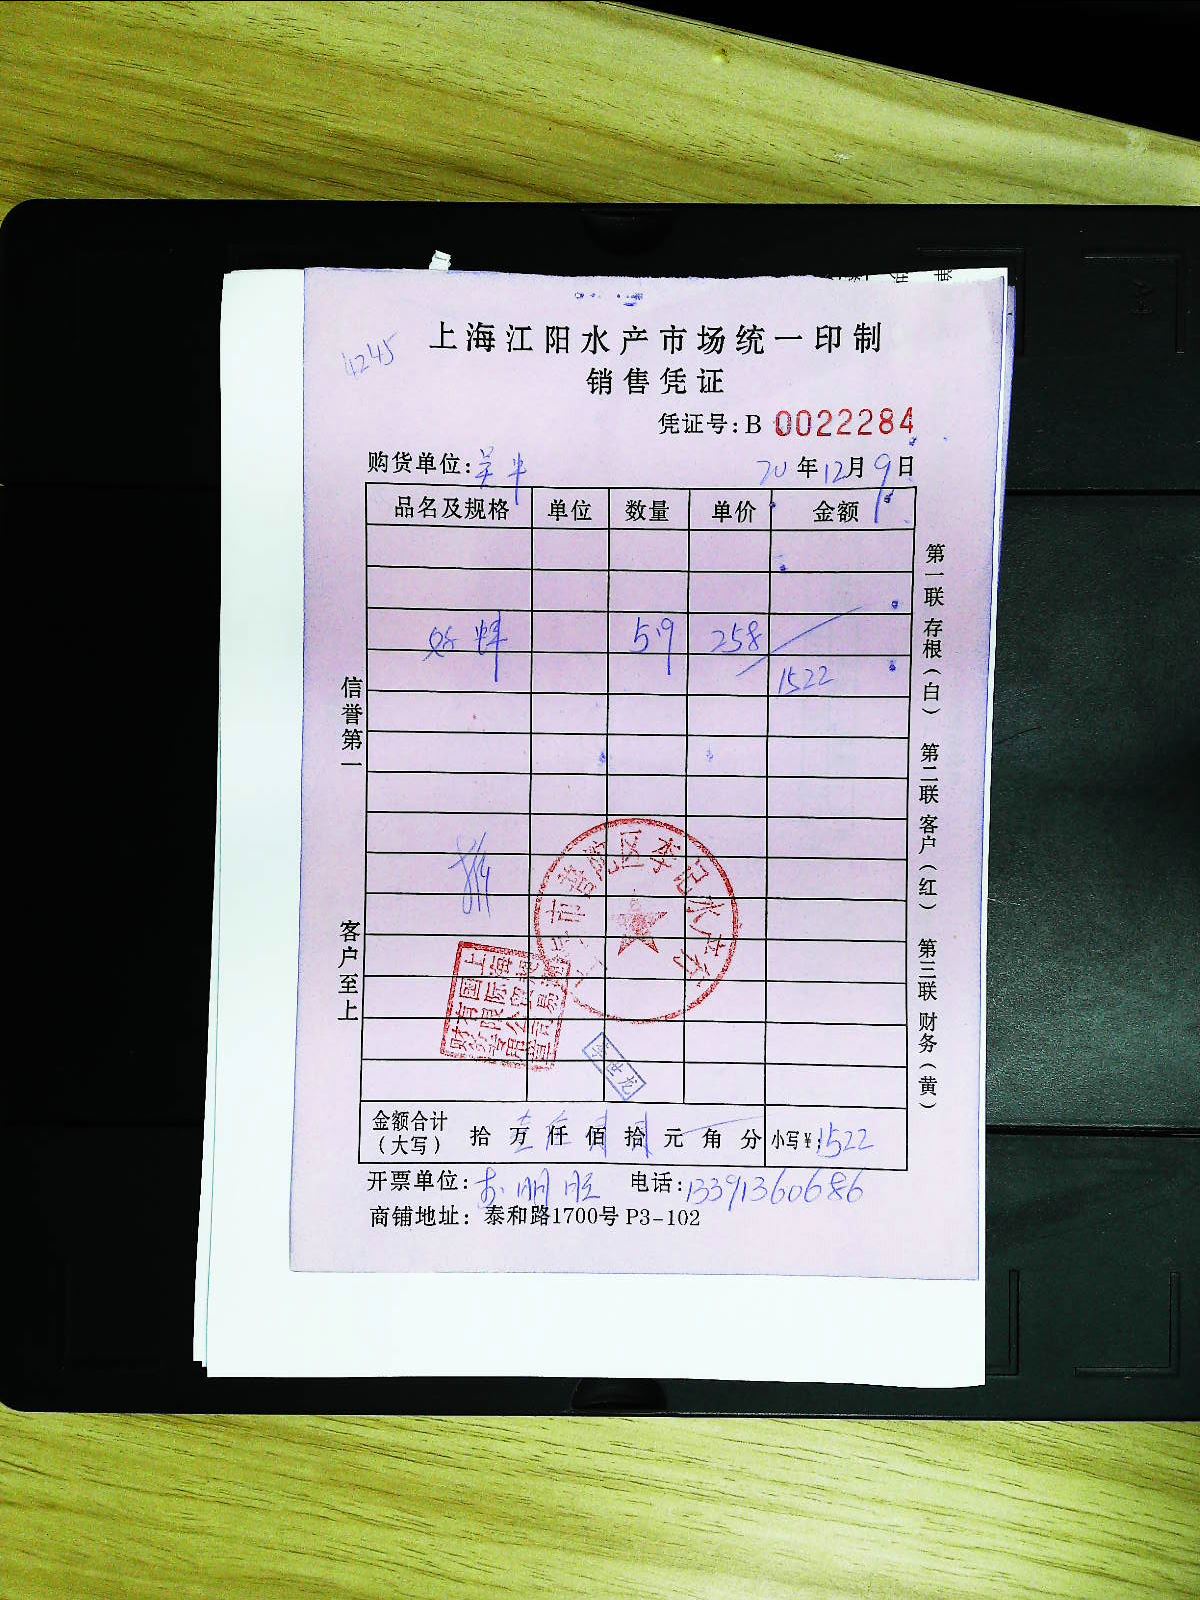 4245
上海江阳水产市场统一印制
销售凭证
凭证号:B 0022284
购货单位:
20年12月9日
品名及规格 单位 数量 单价 金额
519 258
1522
信誉第一
客户至上
第一联 存根(白) 第二联 客户(红) 第三联 财务(黄)
市 区李记水产行
上海
国际贸易
有限公司
财务专用章
金额合计(大写) 拾 万 仟 佰 拾 元 角 分 小写¥:1522
开票单位: 电话:13391360686
商铺地址: 泰和路1700号 P3-102